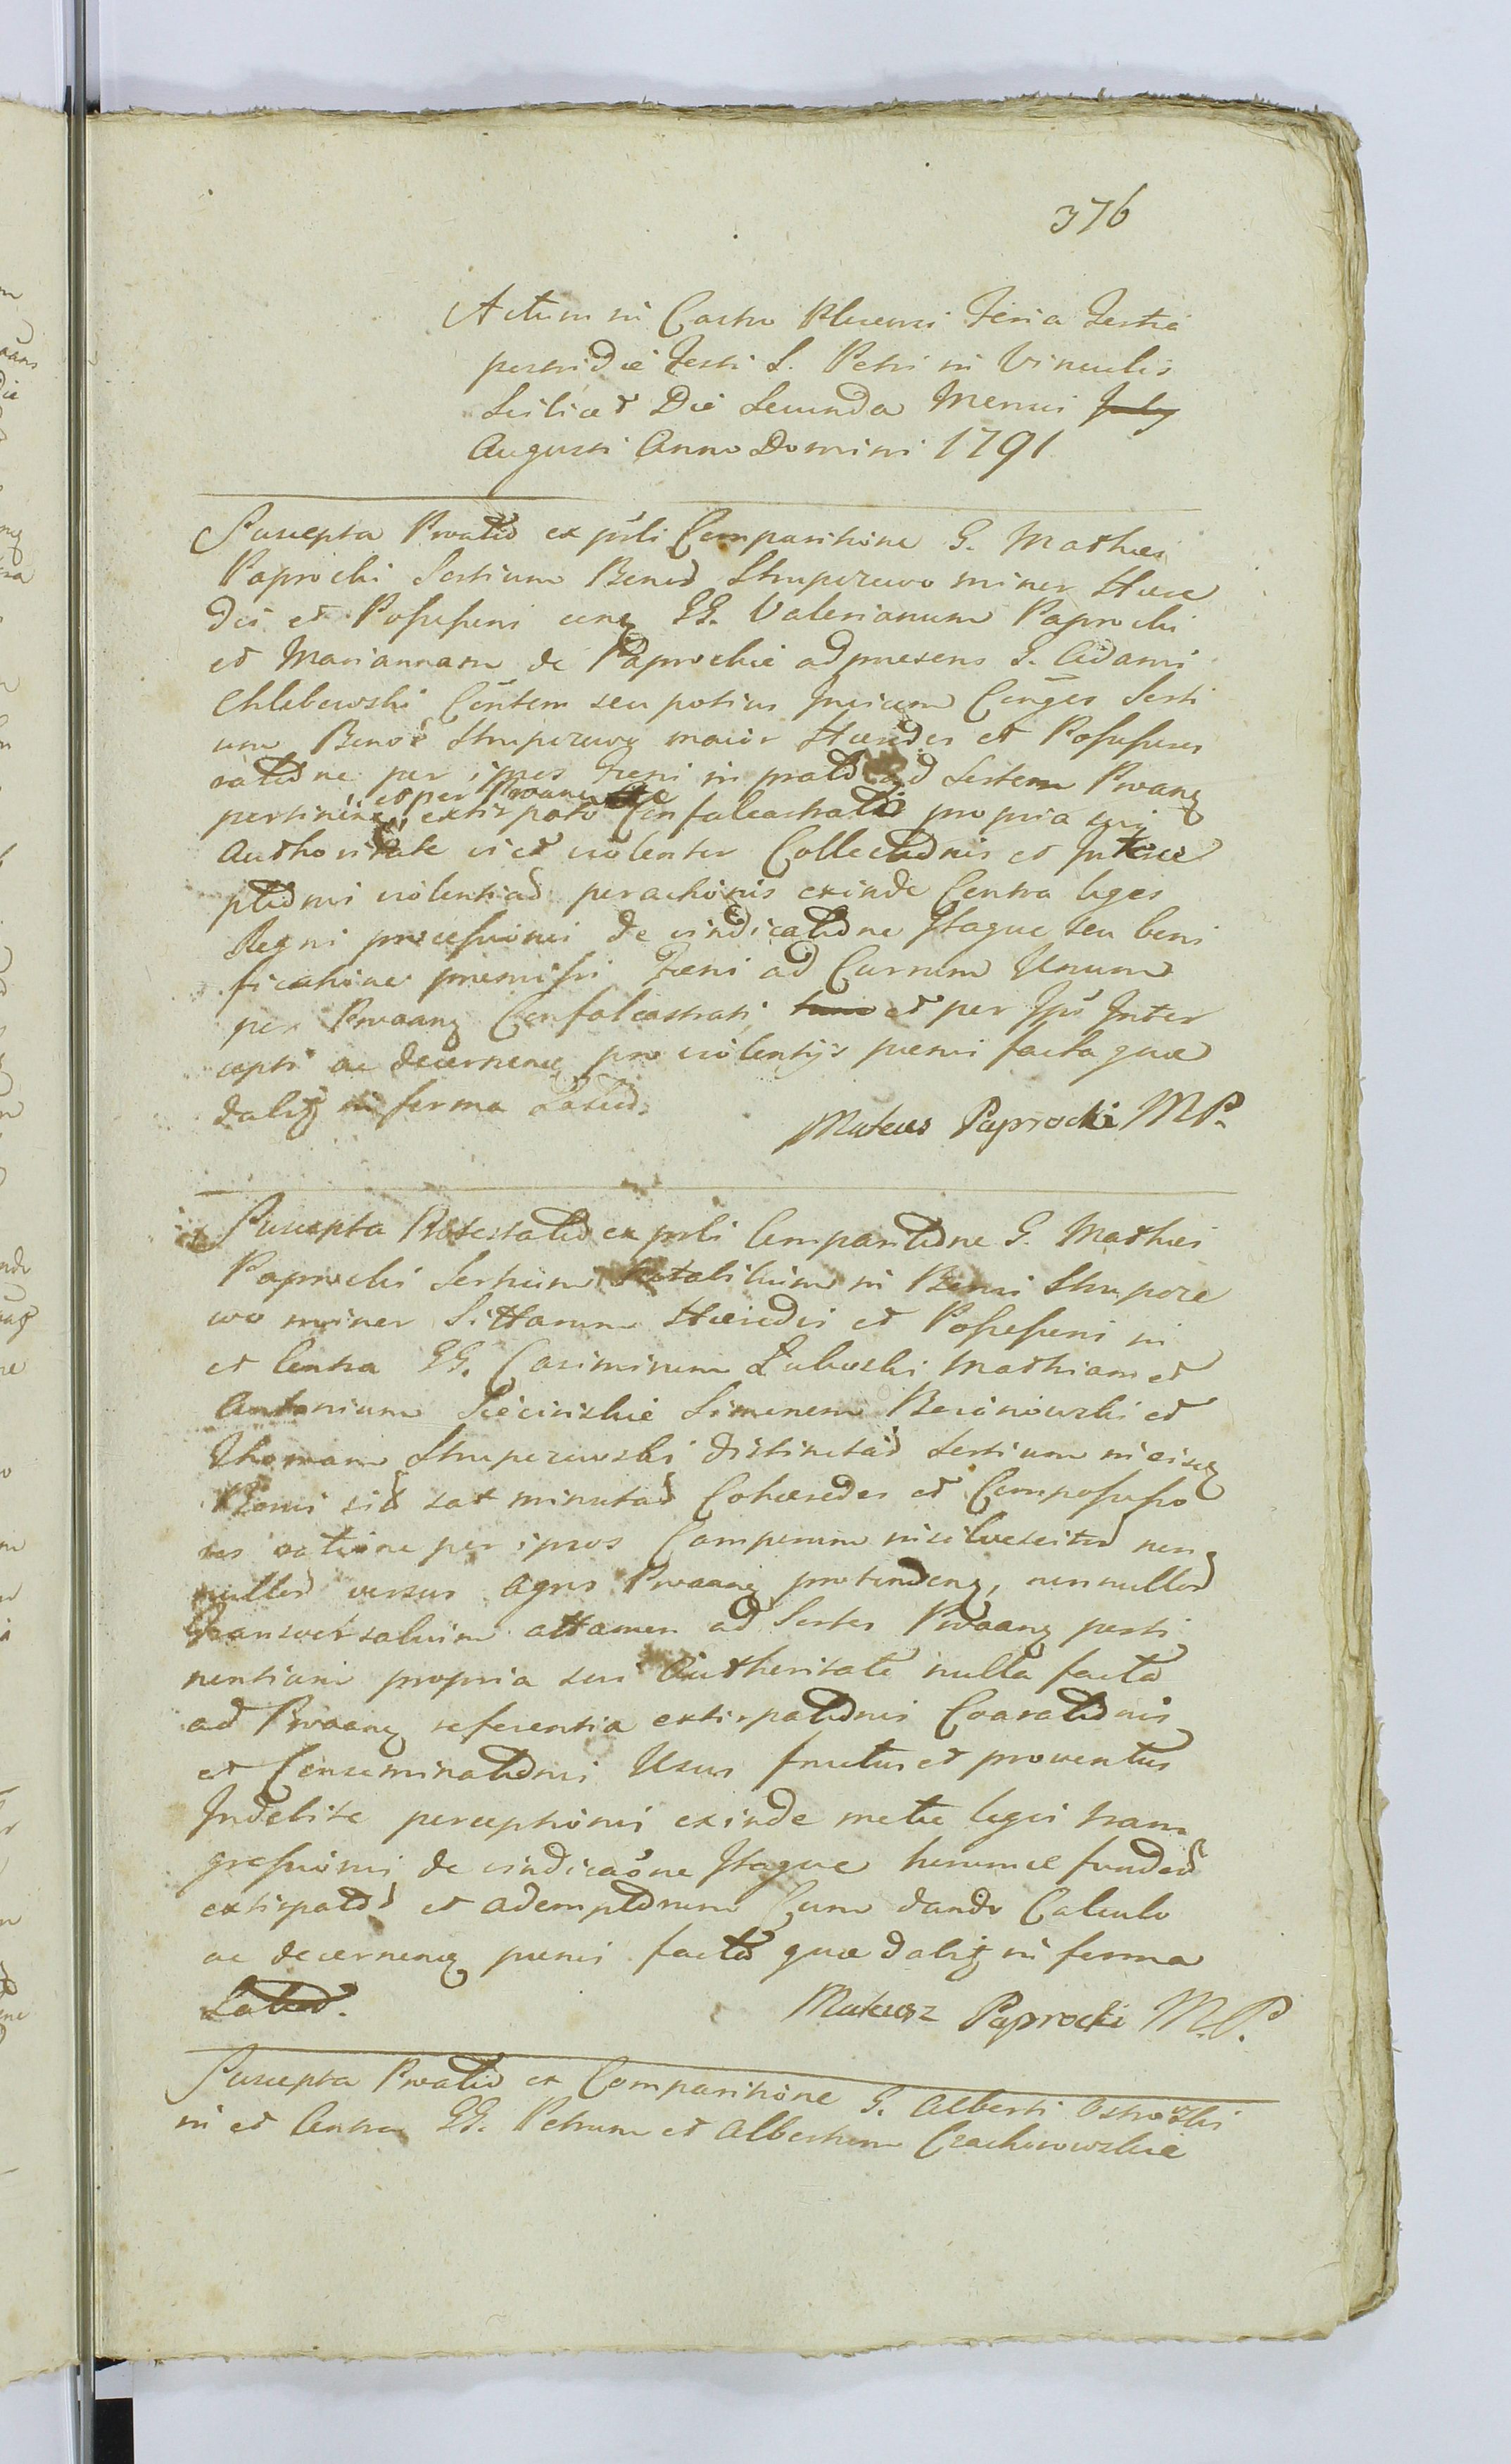 376
Actum in Castro Plocensi Feria Tertia
postridie Festi S. Petri in Vinculis
Scilicet Die Secunda Mensis July
Augusti Anno Domini 1791
Suscepta Prvatio ex pnli Comparitione G. Mathei
Paprocki Sortium Bonor Strupczewo minor Hære
dis et Possessoris cong GG. Valerianum Paprocki
et Mariannam de Paprockie ad præsens G. Adami
Chlebowski Contem seu potius Conges Sorti
um Bonor Strupczewo maior Hæredes et Possessores
ratione per ipsos Fæni in prato ad Sortem Prvang
pertinens et per Prvang extirpato Confalcastratio propria sui
Authoritate vi et violenter Collectionis et Interce
ptionis violentiar peractionis exinde Contra leges
Regni processionis de vindicatione Itaque seu boni
ficatione præmissi Fæni ad Currum Unum
per Prvang Confalcastrati et per Ips Inter
cepti ac decernenq pro violentijs pænis facta quæ
dalig in forma Latiss.
Mateus Paprocki MP.
Suscepta Protestatio ex pnli Comparitione G. Mathei
Paprocki Sortium in Bonis Strupcze
wo minor Sittarum Hæredis et Possessoris in
et Contra GG. Casimirum Żuławski Mathiam et
Antonium Siecinskie Simonem Borinowski et
Thomam Strupczewski distinctar Sortium in eisq
Bonis sid sat minutar Cohæredes et Compossesso
res ratione per ipsos Camporum insilvescitor non
nullor versus agros Prvang protendenq, nonnullor
transversalium attamen ad Sortes Prvaang perti
nentium propria sui Authoritate nulla facta
ad Prvaang referentia extirpationis Coarationis
et Conseminationis Usus fructus et proventus
Indebite perceptionis exinde metæ legis trans
gressionis de vindicaone Itaque horumce fundor
extirpator et ademptorum Cum dando Calculo
ac decernenq pænis facta quæ dalig in forma
Latiss.
Mateusz Paprocki M.P.
Suscepta Prvatio ex Comparitione G. Alberti Ostrowski
in et Contra GG. Petrum et Albertum Czachorowskie